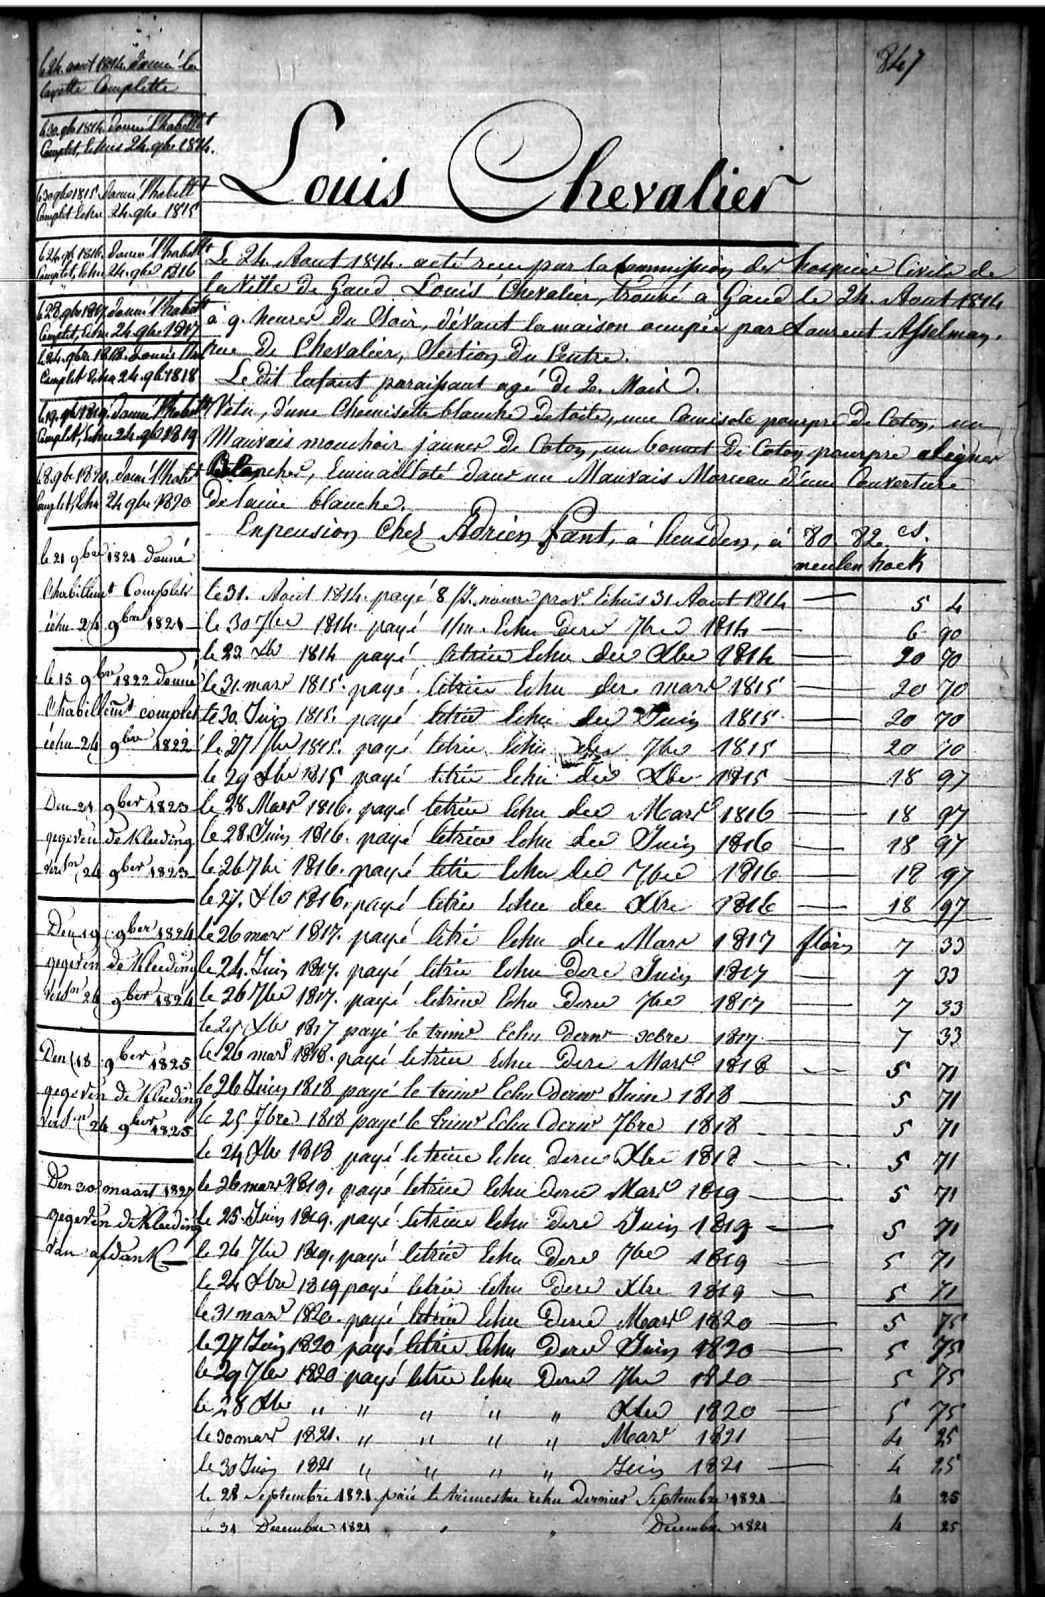 847
Louis Chevalier
le 24. aout 1814. donné la
layette Complette
le 30. 9bre 1814. donné l'habillt
Complet, Echu 24. 9bre 1814.
le 30 9bre 1815. donné l'habillt
Complet Echu 24. 9bre 1815
le 24. 9bre 1816. donné l'habillt
Complet, Echu 24. 9bre 1816
le 28. 9bre 1817. donné l'habillt
Complet, Echu 24. 9bre 1817
le 24. 9bre 1818. donné l'hat
Complet Echu 24. 9bre 1818
le 19. 9bre 1819. donné l'habillt
Complet, Echu 24. 9bre 1819
le 8. 9bre 1820. donné l'habillt
Complet, Echu 24 9bre 1820
le 21 9ber 1821 donné
l'habillemt Complet
échu 24 9bre 1821
le 15 9bre 1822 donné
l'habillemt complet
échu 24 9bre 1822
Den 21 9ber 1823
gegeven de Kleeding
24 9ber 1823
Den 19 9ber 1824
gegeven de Kleeding
24 9ber 1824
Den 18 9ber 1825
gegeven de Kleeding
24 9ber 1825
Den 30 maart 1827
gegeven de Kleeding
van afdank
Le 24. Aout 1814. a été recu par la Commission des hospices Civils de
la Ville de Gand Louis Chevalier, trouvé à Gand le 24. Aout 1814
à 9. heures du Soir, dévant la maison occupée par Laurent Asselman,
rue De Chevalier, Section du Centre.
Le dit Enfant paraissant agé de 2. Mois.
Vetu, d'une Chemisette blanche de toile, une Camisole pourpre de Coton, un
Mauvais mouchoir jaune de Coton, un bonnet De Coton pourpre à lignes
Blanches, Emmailloté dans un Mauvais Morceau d'une Couverture
de laine blanche.
En pension Chez Adrien Fant, à heusden, à 80. 82 cs.
meulen hoek
le 31. Aout 1814. payé 8/J. nourre prov. Echus 31 Aout 1814 5 4
le 30 7bre 1814. payé 1/m. Echu Dere 7bre 1814 6 90
le 23 Xbre 1814 payé letrim Echu der Xbre 1814 20 70
le 31. mars 1815. payé letrim Echu der mars 1815 20 70
le 30. Juin 1815. payé letrim Echu der Juin 1815 20 70
le 27 7bre 1815. payé letrim Echu der 7bre 1815 20 70
le 29 Xbre 1815 payé letrim Echu der Xbre 1815 18 97
le 28 Mars 1816. payé letrim Echu der Mars 1816 18 97
le 28. Juin 1816. payé letrim Echu der Juin 1816 18 97
le 26 7bre 1816. payé letrim Echu der 7bre 1816 18 97
le 27. Xbre 1816. payé letrim Echu der Xbre 1816 18 97
le 26 mars 1817. payé letrim Echu der Mars 1817 florins 7 33
le 24. Juin 1817. payé letrim Echu Dere Juin 1817 7 33
le 26 7bre 1817. payé letrim Echu Dere 7bre 1817 7 33
le 29 Xbre 1817 payé le trimr Echu dernr xbre 1817 7 33
le 26 mars 1818. payé letrim Echu Dere Mars 1818 5 71
le 26 Juin 1818 payé le trimr Echu Dernr Juin 1818 5 71
le 25 7bre 1818 payé le trimr Echu Dernr 7bre 1818 5 71
le 24 Xbre 1818 payé letrim Echu dere Xbre 1818 5 71
le 26 mars 1819. payé letrim Echu dere Mars 1819 5 71
le 25. Juin 1819. payé letrim Echu Dere Juin 1819 5 71
le 26 7bre 1819. payé letrim Echu Dere 7bre 1819 5 71
le 24 Xbre 1819 payé letrim Echu Dere Xbre 1819 5 71
le 31 mars 1820. payé letrim Echu Dere Mars 1820 5 75
le 27 Juin 1820 payé letrim Echu Dere Juin 1820 5 75
le 29 7bre 1820 payé letrim Echu Dere 7bre 1820 5 75
le 28 Xbre " " " " " Xbre 1820 5 75
le 30 mars 1821. " " " " Mars 1821 4 25
le 30 Juin 1821 " " " " Juin 1821 4 25
le 28 Septembre 1821 paié le trimestre échu Dernier Septembre 1821 4 25
le 31 Decembre 1821 " " " Decembre 1821 4 25